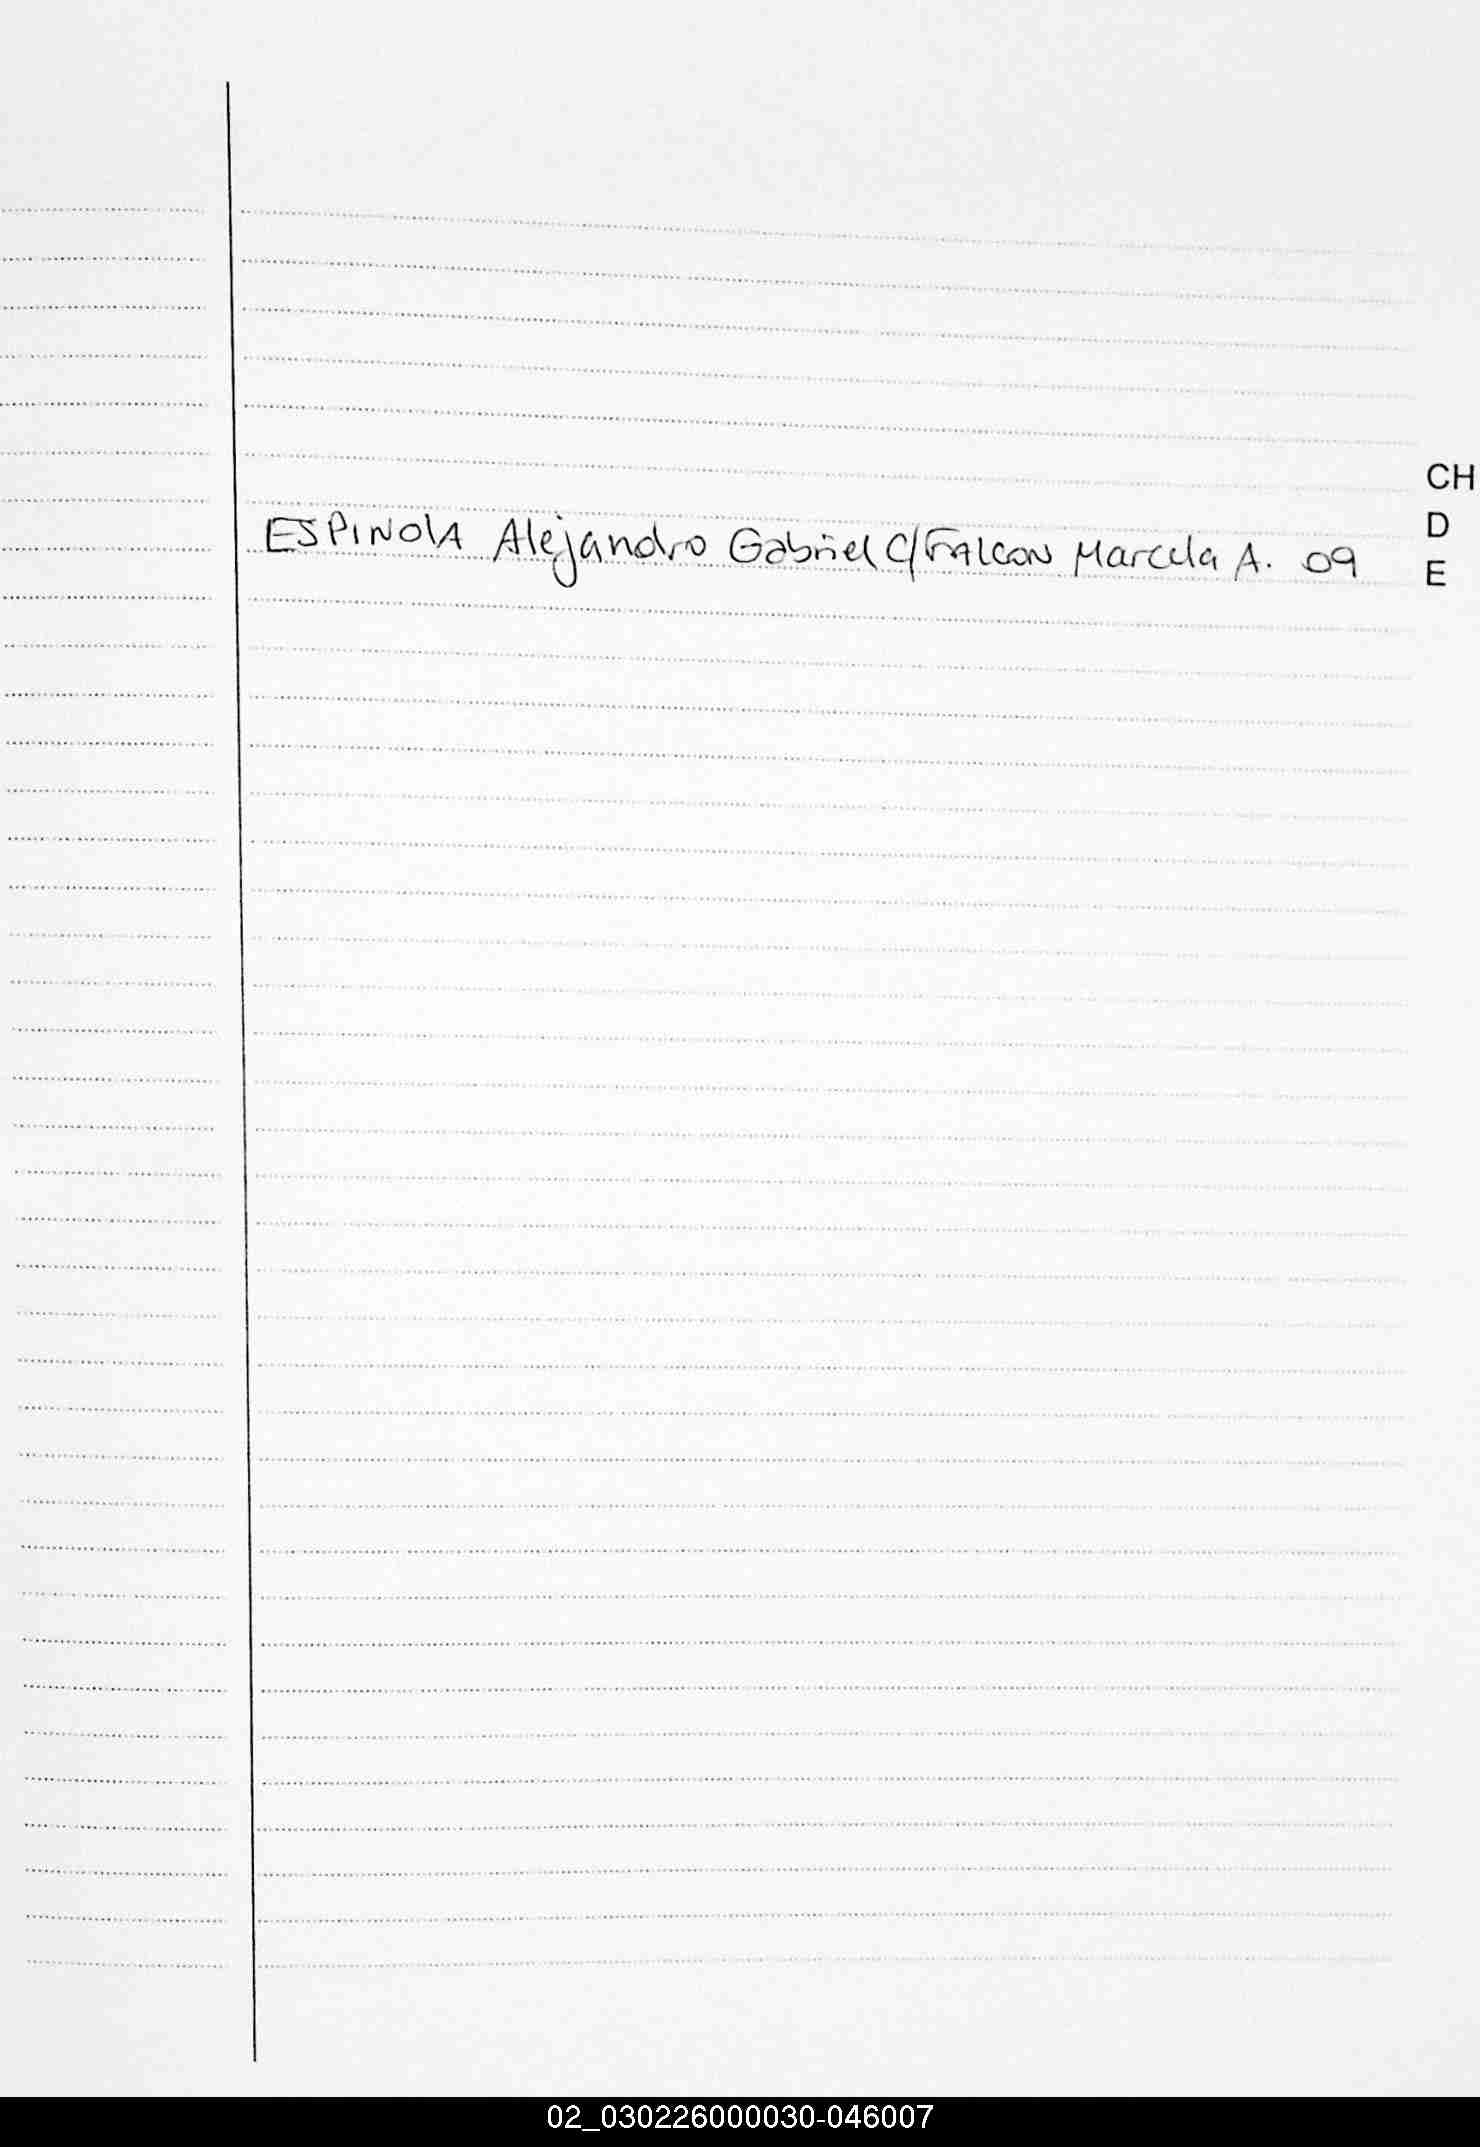 CH
D
ESPINOLA Alejandro Gabriel C/FALCON Marcela A. 09
E
02_030226000030-046007